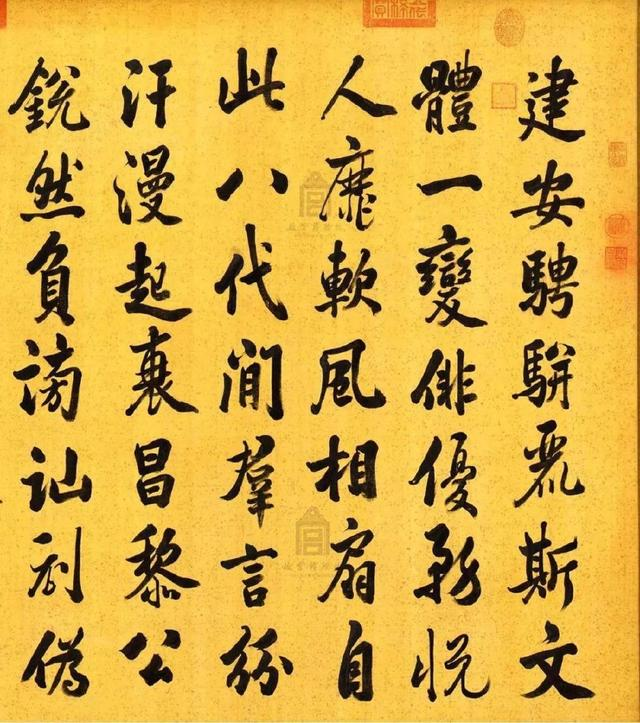 建安騁駢麗斯文
體一變俳優務悦
人靡軟風相扇自
此八代間羣言紛
汗漫起衰昌黎公
鋭然負謗訕剗偽